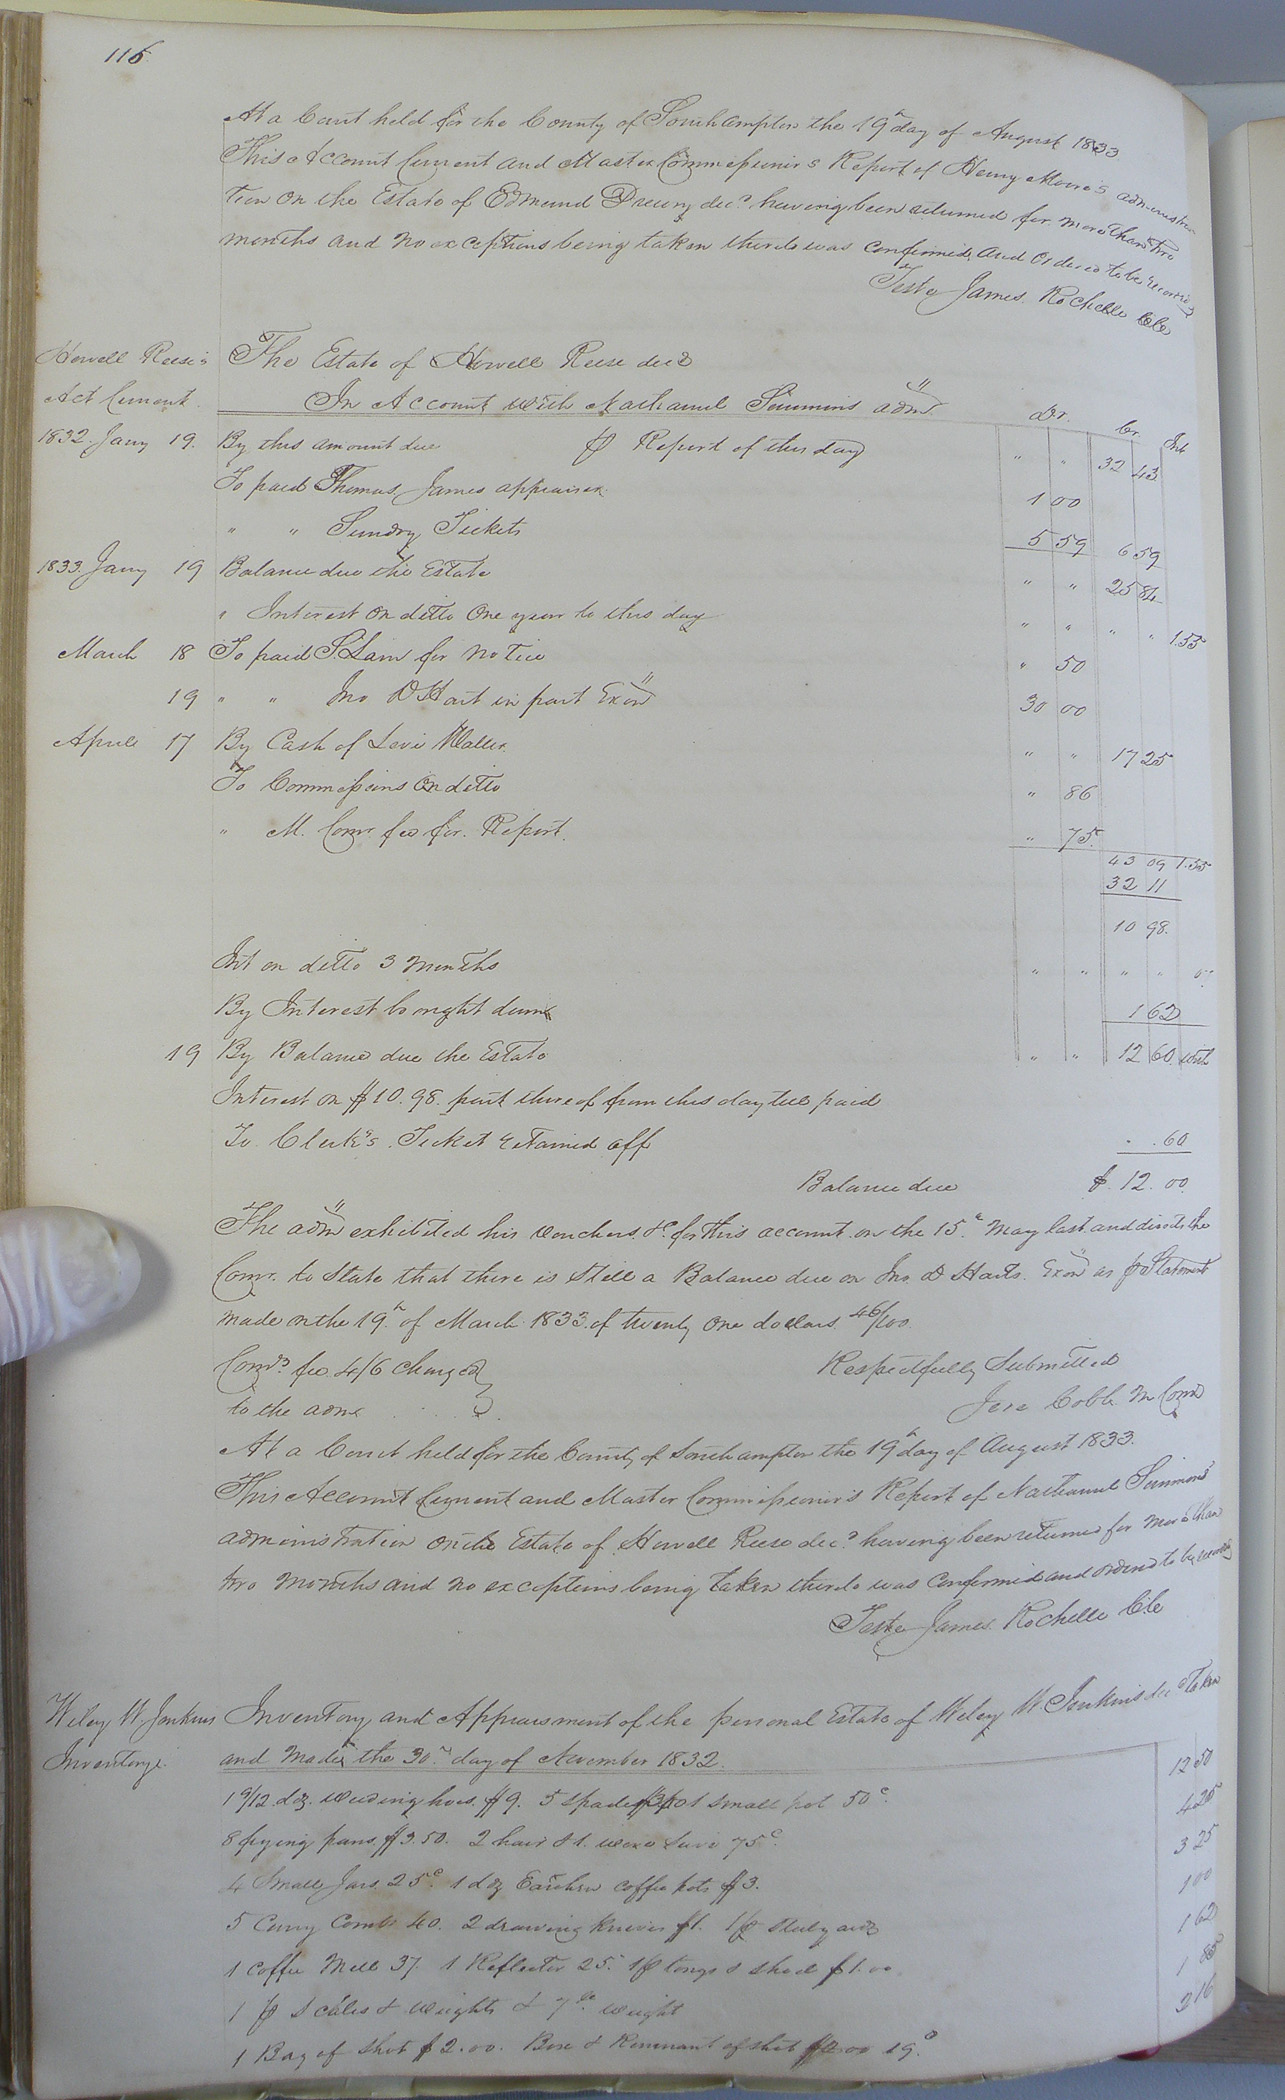 116
At a Court held for the County of Southampton the 19th day of August 1833
This Account Current and Master Commissioner's Report of Henry Moore's administra
tion on the Estate of Edmund Drewry decd having been returned for more than two
months and no exceptions being taken thereto was confirmed and ordered to be recorded
Teste James Rochelle Clk
Howell Reese's The Estate of Howell Reese decd
Act Current In Account with Nathaniel Simmons admr Dr. Cr. Int
1832 Jany 19. By this amount due $ Report of this day " " 32 43
To paid Thomas James appraiser 1 00
" " Sundry Tickets 5 59 6 59
1833 Jany 19 Balance due the Estate " " 25 84
" Interest on ditto One year to this day " " " " 1.55
March 18 To paid S. Lain for notice " 50
19 " " Jno D Hart in part Exon 30 00
April 17 By Cash of Levi Waller " " 17 25
To Commissions on ditto " 86
" M. Comr. fee for Report " 75
43 09 1.55
32 11
10 98
Int on ditto 3 months " " " "
By Interest brought down 1 62
19 By Balance due the Estate " " 12 60 with
Interest on $10.98 part thereof from this day till paid
To Clerk's Ticket retained off . .60
Balance due $ 12.00
The admr exhibited his vouchers &c for this account on the 15th May last and directs the
Comr. to State that there is still a Balance due on Jno D Harts Exon as $ Statement
made on the 19th of March 1833 of twenty one dollars 46/100
Comrs fee 4/6 charged Respectfully Submitted
to the admr Jere Cobb M Comr
At a Court held for the County of Southampton the 19th day of August 1833.
This Account Current and Master Commissioner's Report of Nathaniel Simmons'
administration on the Estate of Howell Reese decd having been returned for more than
two months and no exceptions being taken thereto was confirmed and ordered to be recorded
Teste James Rochelle Clk
Wiley W Jenkins Inventory and Appraisment of the personal Estate of Wiley W. Jenkins decd taken
Inventory. and made the 30th day of November 1832
1 9/12 doz. weeding hoes $9. 5 spades 1 small pot 50c. 12 50
8 frying pans $3.50. 2 hair & 1 wove sive 75c. 4 25
4 Small Jars 25c. 1 doz Earthen coffee pots $3. 3 25
5 Curry Combs 40. 2 drawing knives $1. 1 00
1 coffee Mill 37. 1 Reflector 25. 1 p tongs & shovel $1.00 1 62
1 p Scales & weights & 7lb weight 1
1 Bag of Shot $2.00. Box & Remnant of shot 19c. 2 16